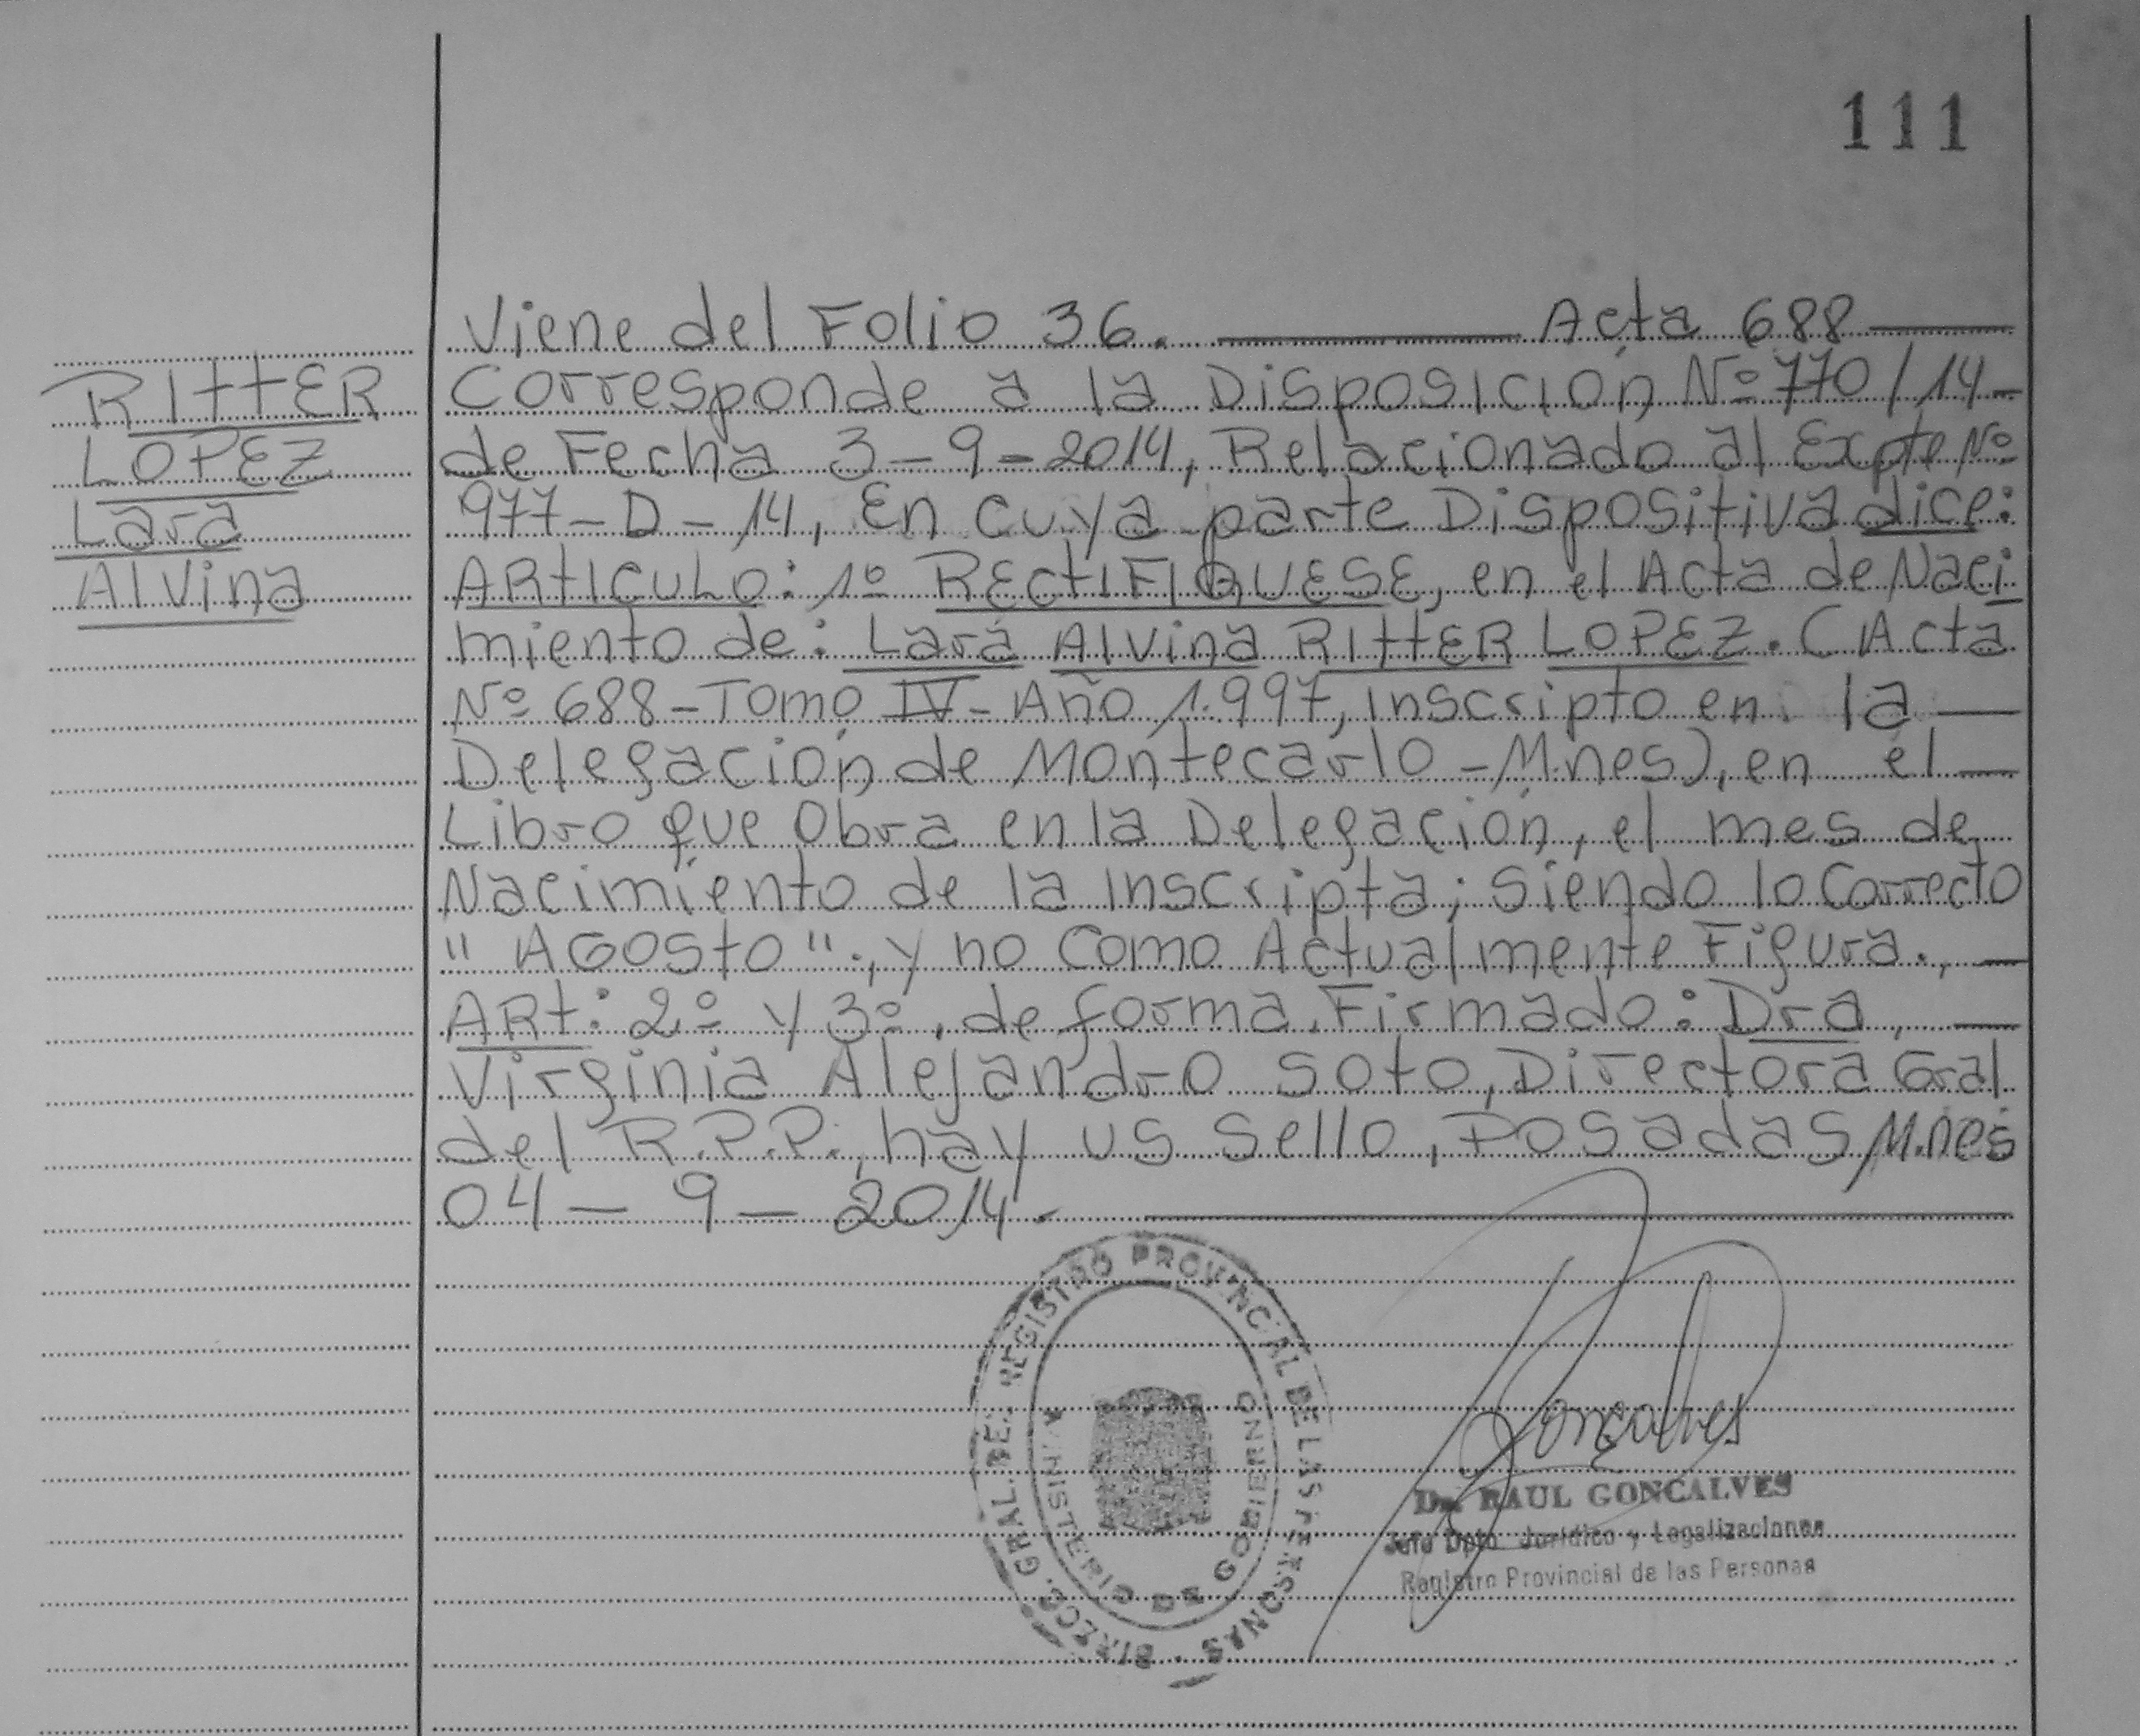 111
Viene del Folio 36. Acta 688
RITTER
LOPEZ
Lara
Alvina
Corresponde a la Disposición Nº 770/14-
de Fecha 3-9-2014, Relacionado al Expte Nº
977-D-14, En cuya parte Dispositiva dice:
ARTICULO: 1º RECTIFIQUESE, en el Acta de Naci
miento de: Lara Alvina RITTER LOPEZ. (Acta
Nº 688-Tomo IV- Año 1.997, inscripto en la
Delegación de Montecarlo - M.nes), en el
Libro que Obra en la Delegación, el mes de
Nacimiento de la inscripta; siendo lo Correcto
"AGOSTO"., y no Como Actualmente Figura.,
ART: 2º y 3º, de forma. Firmado: Dra,
Virginia Alejandro Soto, Directora Gral
del R.P.P., hay us Sello, Posadas M.nes
04-9-2014.
DIRECC. GRAL. DEL REGISTRO PROVINCIAL DE LAS PERSONAS
MINISTERIO DE GOBIERNO
Gonçalves
Dr. RAUL GONCALVES
Jefe Dpto. Jurídico y Legalizaciones
Registro Provincial de las Personas